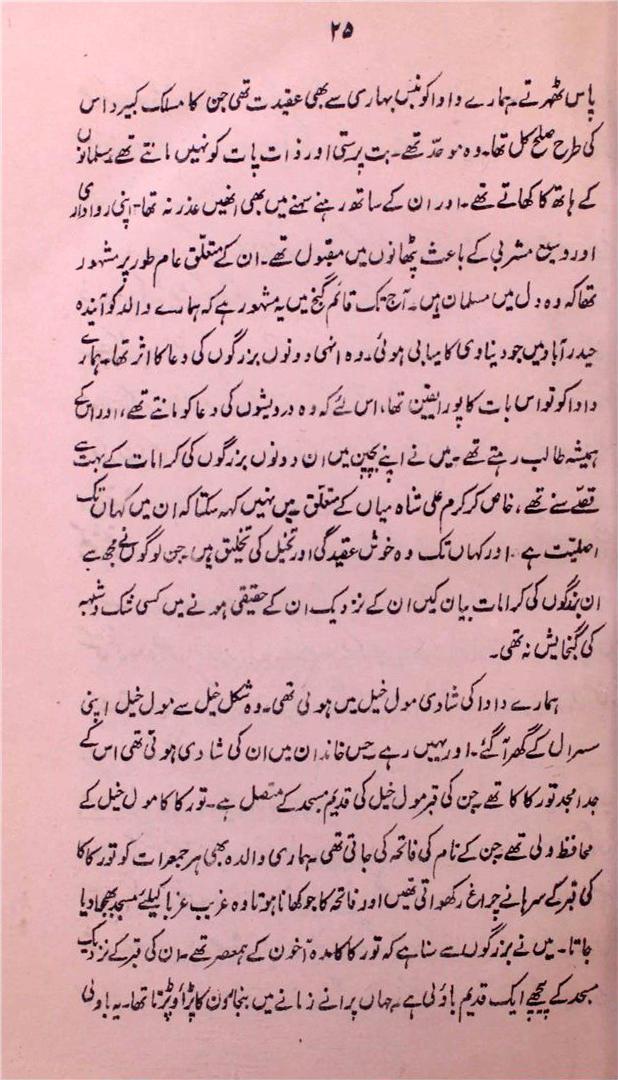 ۲۵
پاس ٹھہرتے۔ ہمارے دادا کو نیس بہاری سے بھی عقیدت تھی جن کا مسلک کبیر داس
کی طرح صلح کل تھا۔ وہ موحد تھے۔ بت پرستی اور ذات پات کو نہیں مانتے تھے مسلمانوں
کے ہاتھ کا کھاتے تھے۔ اور ان کے ساتھ رہنے سہنے میں بھی انھیں عذر نہ تھا۔ اپنی رواداری
اور وسیع مشربی کے باعث پٹھانوں میں مقبول تھے۔ ان کے متعلق عام طور پر مشہور
تھا کہ وہ دل میں مسلمان ہیں۔ آج تک قائم گنج میں یہ مشہور ہے کہ ہمارے والد کو آیندہ
حیدرآباد میں جو دنیاوی کامیابی ہوئی۔ وہ انہی دونوں بزرگوں کی دعا کا اثر تھا۔ ہمارے
دادا کو تو اس بات کا پورا یقین تھا، اس لئے کہ وہ درویشوں کی دعا کو مانتے تھے، اور اس کے
ہمیشہ طالب رہتے تھے۔ میں نے اپنے بچپن میں ان دونوں بزرگوں کی کرامات کے بہت سے
قصّے سنے تھے، خاص کر کرم علی شاہ میاں کے متعلق میں نہیں کہہ سکتا کہ ان میں کہاں تک
اصلیت ہے۔ اور کہاں تک وہ خوش عقیدگی اور تخیل کی تخلیق ہیں۔ جن لوگوں نے مجھ سے
ان بزرگوں کی کرامات بیان کیں ان کے نزدیک ان کے حقیقی ہونے میں کسی شک و شبہہ
کی گنجایش نہ تھی۔
ہمارے دادا کی شادی مول خیل میں ہوئی تھی۔ وہ شکل خیل سے مول خیل اپنی
سسرال کے گھر آگئے۔ اور یہیں رہے جس خاندان میں ان کی شادی ہوئی تھی اس کے
جد امجد تورکاکا تھے جن کی قبر مول خیل کی قدیم مسجد کے متصل ہے۔ تورکاکا مول خیل کے
محافظ ولی تھے جن کے نام کی فاتحہ کی جاتی تھی۔ ہماری والدہ بھی ہر جمعرات کو تورکاکا
کی قبر کے سرہانے چراغ رکھواتی تھیں اور فاتحہ کا جو کھانا ہوتا وہ غریب غربا کیلئے مسجد بھجوا دیا
جاتا۔ میں نے بزرگوں سے سنا ہے کہ تورکاکا ملا آخون کے ہمعصر تھے۔ ان کی قبر کے نزدیک
مسجد کے پیچھے ایک قدیم باؤلی ہے۔ جہاں پرانے زمانے میں بنجاروں کا پڑاؤ پڑتا تھا۔ یہ باولی